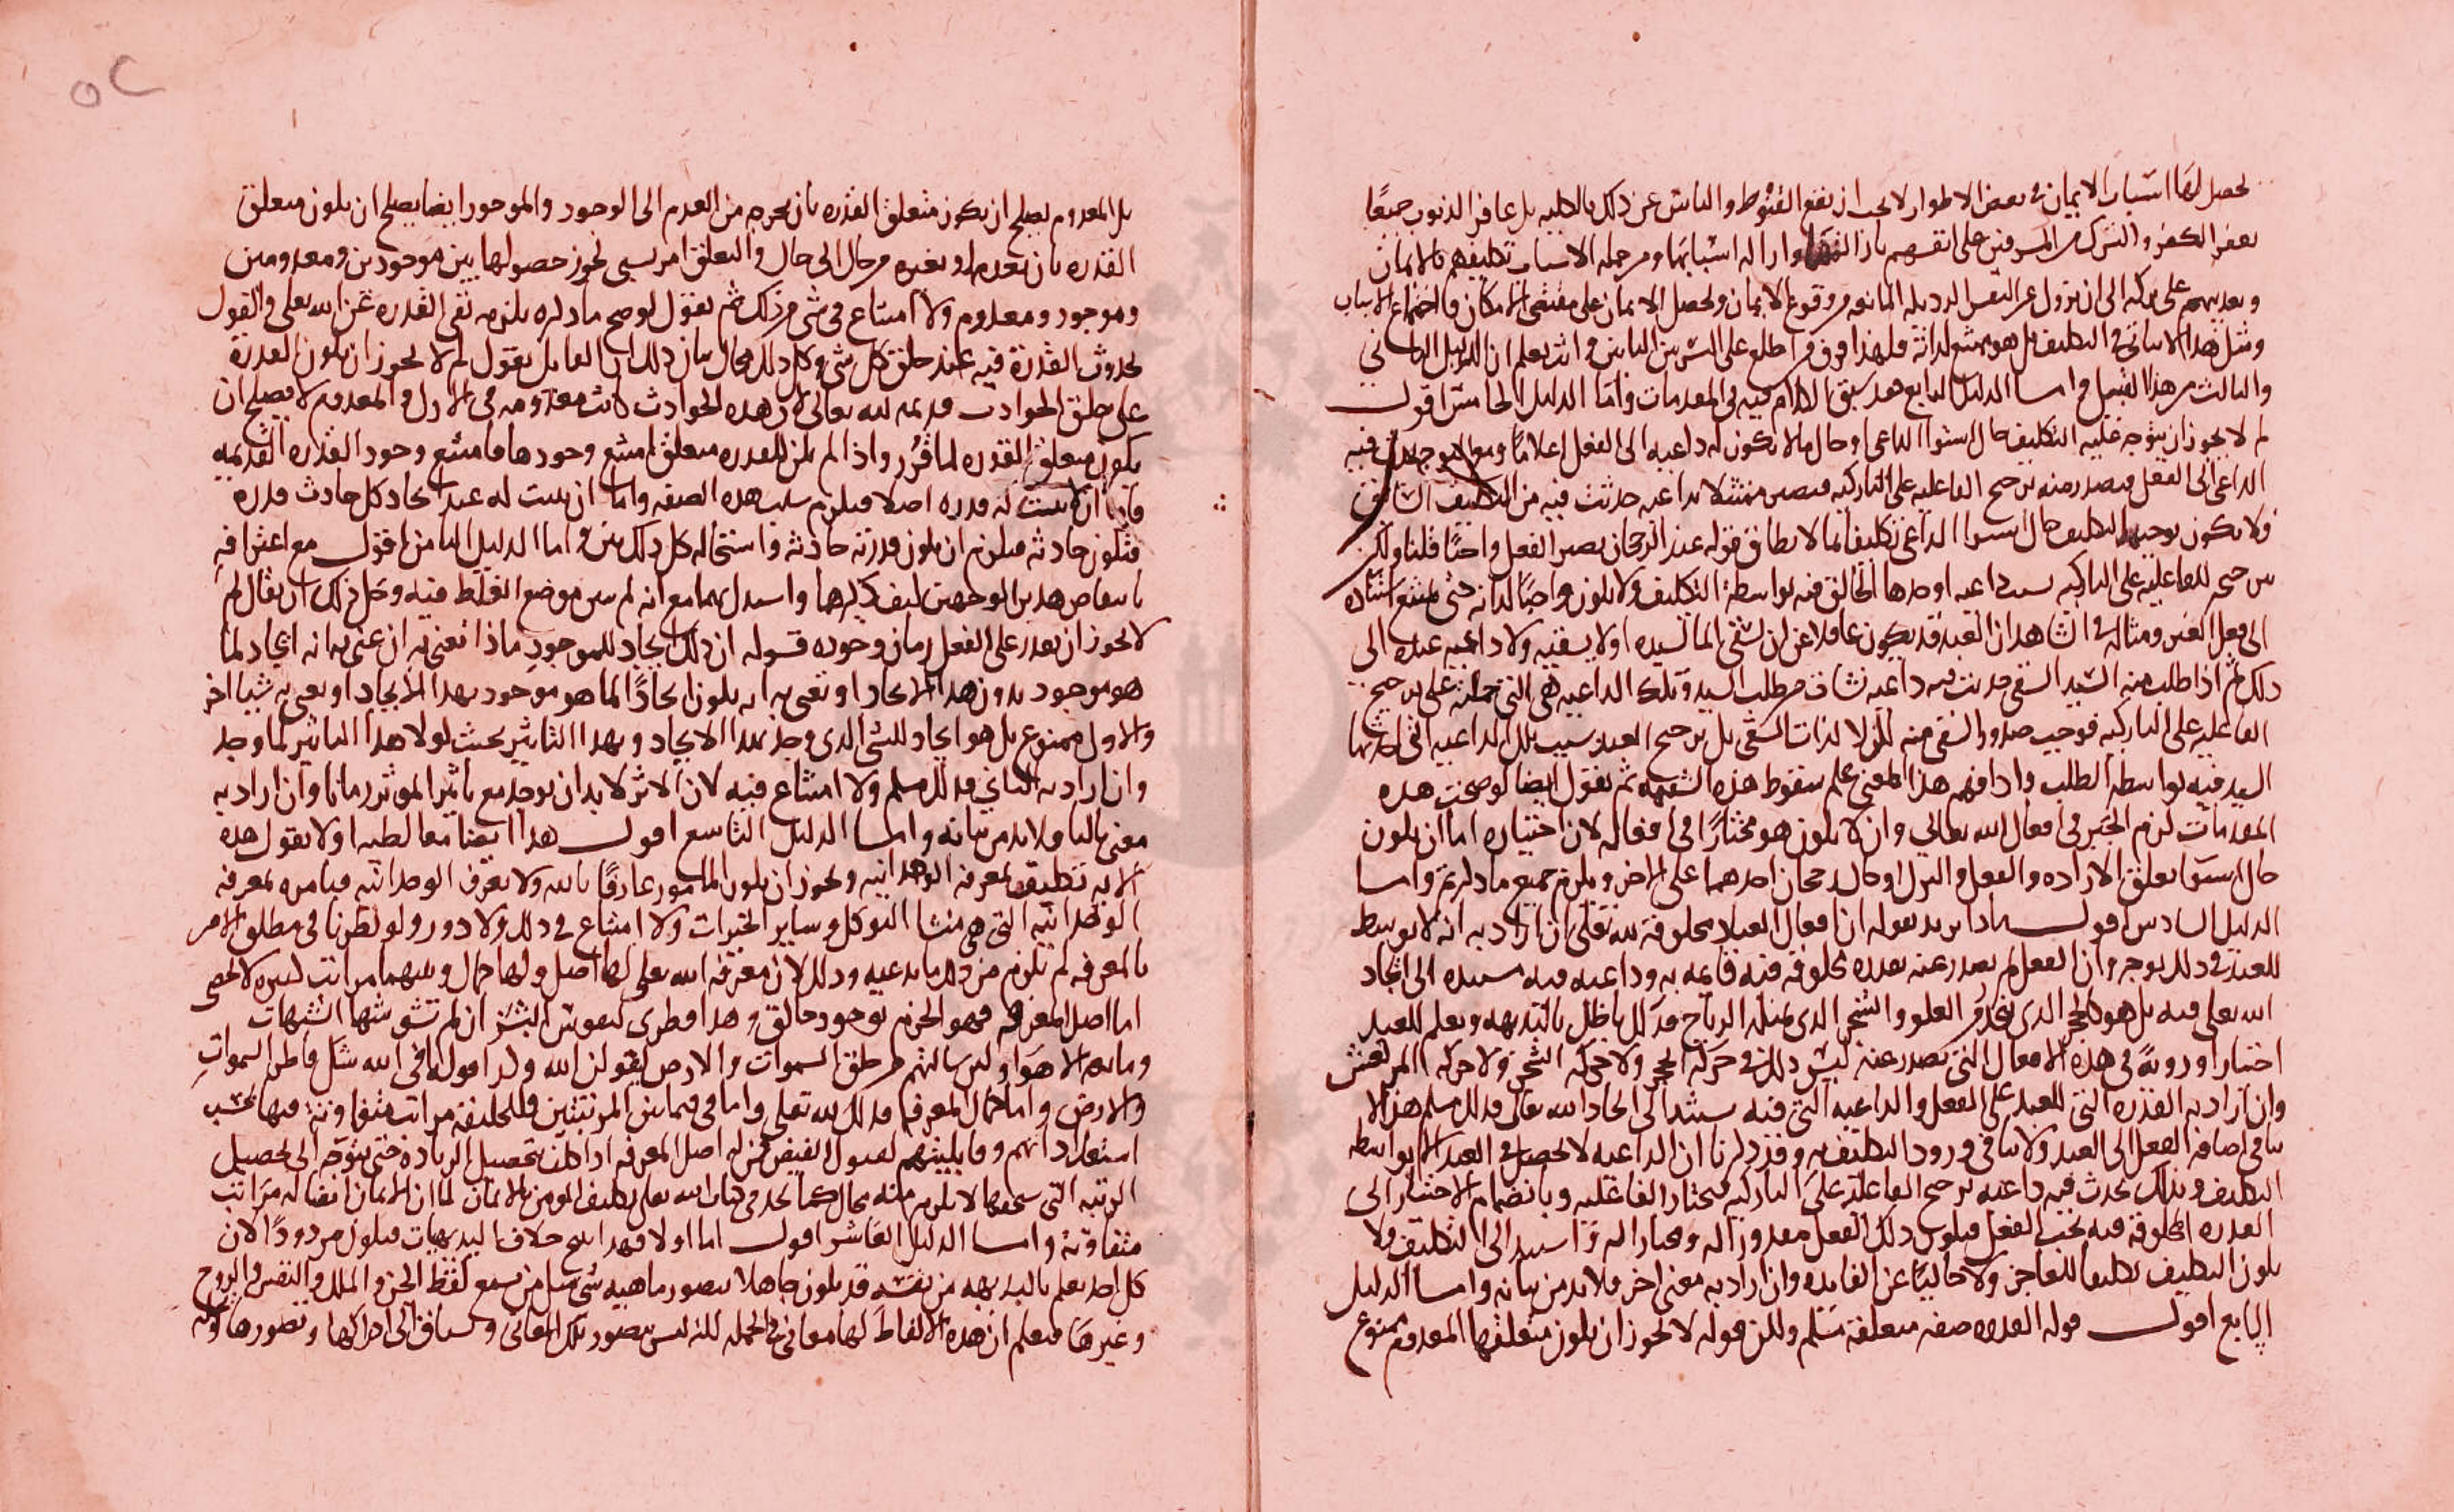 يحصل لها اسباب الايمان في بعض الاطوار لا يجب ان يقع القنوط والياس عن ذلك بالكلية بل غافر الذنوب جميعا
يغفر الكفر والشرك من المسرفين على انفسهم باذالتها وازاله اسبابها ومن جمله الاسباب تكليفهم بالايمان
وتعذيبهم على تركه الى ان يزول عن النفس الرذيله المانعه من وقوع الايمان ويحصل الايمان على مقتضى الامكان واجتماع الاسباب
ومثل هذا لا ينافي التكليف بل هو ممتنع لذاته فلهذا فرق من اطلع على السر بين البابين وانت تعلم ان الدليل الثاني
والثالث من هذا القبيل واما الدليل الرابع فقد سبق الكلام فيه في المقدمات واما الدليل الخامس اقول
لم لا يجوز ان يتوجه عليه التكليف حال استوا الداعي او حال ما لا يكون له داعيه الى الفعل اعلاما فيه
الداعي الى الفعل فيصدر منه ترجيح الفاعليه على التاركيه فيصير ممتثلا بداعيه حدثت فيه من التكليف السابق
ولا يكون توجيه التكليف حال استوا الداعي تكليفا بما لا يطاق قوله عند الرجحان يصير الفعل واجبا قلنا ولكن
بترجيحه للفاعليه على التاركيه بسبب داعيه اوجدها الخالق فيه بواسطة التكليف ولا يكون واجبا لذاته حتى يمتنع استناده
الى فعل الغير ومثاله في الشاهد ان العبد قد يكون غافلا عن ان يسقى الما لسيده او لا يسقيه ولا داعيه عنده الى
ذلك ثم اذا طلب منه السيد السقي حدثت فيه داعيه نشات من طلب السيد وتلك الداعيه هي التي حملته على ترجيح
الفاعليه على التاركيه فوجب صدور السقي منه لكن لا لذات السقي بل ترجيح العبد بسبب تلك الداعيه التي احدثها
السيد فيه بواسطه الطلب واذا فهم هذا المعنى علم سقوط هذه الشبهه ثم نقول ايضا لو صحت هذه
المقدمات لزم الجبر في افعال الله تعالى وان لا يكون هو مختارا في افعاله لان اختياره اما ان يكون
حال استوا تعلق الارادة والفعل والترك او حال رجحان احدهما على الاخر ويلزم جميع ما ذكرتم واما
الدليل السادس اقول ماذا يريد بقوله ان افعال العباد مخلوقة لله تعالى ان اراد به انه لا توسط
للعبد في ذلك بوجه وان الفعل لم يصدر عنه بقدره مخلوقه فيه قايمه به وداعيه فيه مستنده الى ايجاد
الله تعلى فيه بل هو كالحجر الذي ينحدر من العلو والشجر الذي تميله الرياح فذلك باطل بالبديهه ونعلم للعبد
اختيارا ورويةً في هذه الافعال التي تصدر عنه ليس ذلك في حركه الحجر ولا حركه الشجر ولا حركه المرتعش
وان اراد به القدره التي للعبد على الفعل والداعيه التي فيه يستند الى ايجاد الله تعالى فذلك مسلم هذا لا
ينافي اضافه الفعل الى العبد ولا ينافي ورود التكليف به وقد ذكرنا ان الداعيه لا تحصل في العبد الا بواسطه
التكليف وبذلك تحدث فيه داعيه ترجح الفاعليه على التاركيه فيختار الفاعليه وبانضمام الاختيار الى
القدره المخلوقه فيه يجب الفعل فيكون ذلك الفعل مقدورا له ومختارا له واستند الى التكليف ولا
يكون التكليف تكليفا للعاجز ولا خاليا عن الفايده وان اراد به معنى اخر فلا بد من بيانه واما الدليل
السابع اقول قوله القدره صفه متعلقه مسلم ولكن قوله لا يجوز ان يكون متعلقها المعدوم ممنوع
بل المعدوم يصلح ان يكون متعلق القدره بان يخرجه من العدم الى الوجود والموجود ايضا يصلح ان يكون متعلق
القدره بان يعدمه او يغيره من حال الى حال والتعلق امر نسبي يجوز حصولها بين موجودين ومعدومين
وموجود ومعدوم ولا امتناع في شي من ذلك ثم نقول لو صح ما ذكره يلزمه نفي القدره عن الله تعلى والقول
بحدوث القدرة فيه عند خلق كل شي وكل ذلك محال بيان ذلك ان القايل يقول لم لا يجوز ان يكون القدرة
على خلق الحوادث قديمه لله تعالى لان هذه الحوادث كانت معدومه في الازل والمعدوم لا يصلح ان
يكون متعلق القدره لما قرر واذا لم يكن للقدره متعلق امتنع وجودها فامتنع وجود القدره القديمه
فاما ان لا يثبت له قدره اصلا فيلزم سلب هذه الصفه واما ان يثبت له عند ايجاد كل حادث قدره
فتكون حادثه فيلزم ان يكون قدرته حادثه واستحاله كل ذلك بين واما الدليل الثامن اقول مع اعترافه
بانتقاض هذين الوجهين كيف ذكرهما واستدل بهما مع انه لم يبين موضع الغلط فيه وحل ذلك ان يقال لم
لا يجوز ان يقدر على الفعل زمان وجوده قوله ان ذلك ايجاد للموجود ماذا تعني به ان عنى به انه ايجاد لما
هو موجود بدون هذا الايجاد او تعني به انه يكون ايجادا لما هو موجود بهذا الايجاد او يعني به شيا اخر
والاول ممنوع بل هو ايجاد للشي الذي وجد بهذا الايجاد وبهذا التاثير بحيث لولا هذا التاثير لما وجد
وان اراد به الثاني فذلك مسلم ولا امتناع فيه لان الاثر لا بد ان يوجد مع تاثير الموثر زمانا وان اراد به
معنى ثالثا فلا بد من بيانه واما الدليل التاسع اقول هذا ايضا مغالطه اولا يقول هذه
الايه تكليف بمعرفه الوحدانيه ويجوز ان يكون المامور عارفا بالله ولا يعرف الوحدانيه فيامره بمعرفه
الوحدانيه التي هي منشا التوكل وساير الخيرات ولا امتناع في ذلك ولا دور ولو نظرنا في مطلق الامر
بالمعرفه لم يلزم من ذلك ما يدعيه وذلك لان معرفه الله تعلى لها اصل ولها كمال وبينهما مراتب كثيره لا تحصى
اما اصل المعرفه فهو الجزم بوجود خالق وهذا فطري لنفوس البشر ان لم تشوشها الشبهات
ومانعه الاهوا ولين سالتهم من خلق السموات والارض ليقولن الله ولذا قوله افي الله شك فاطر السموات
والارض واما كمال المعرفه فذلك لله تعلى واما في ما بين المرتبتين فللخليقة مراتب متفاوتة فيها بحسب
استعداداتهم وقابليتهم لقبول الفيض فمن له اصل المعرفه اذا كلف بتحصيل الزيادة حتى يتوجه الى تحصيل
الرتبه التي يستحقها لا يلزم منه محال كما نجد في كتاب الله تعلى تكليف المومن بالايمان لما ان الايمان ايضا له مراتب
متفاوتة واما الدليل العاشر اقول اما اولا فهذا ايضا خلاف البديهيات فيكون مردودا لان
كل احد يعلم بالبديهه من نفسه قد يكون جاهلا بتصور ماهيه شي مثل من يسمع لفظ الجن والملك والنفس والروح
وغيرها فيعلم ان هذه الالفاظ لها معاني في الجمله لكنه ليس بتصور تلك المعاني ويشتاق الى ادراكها وتصورها